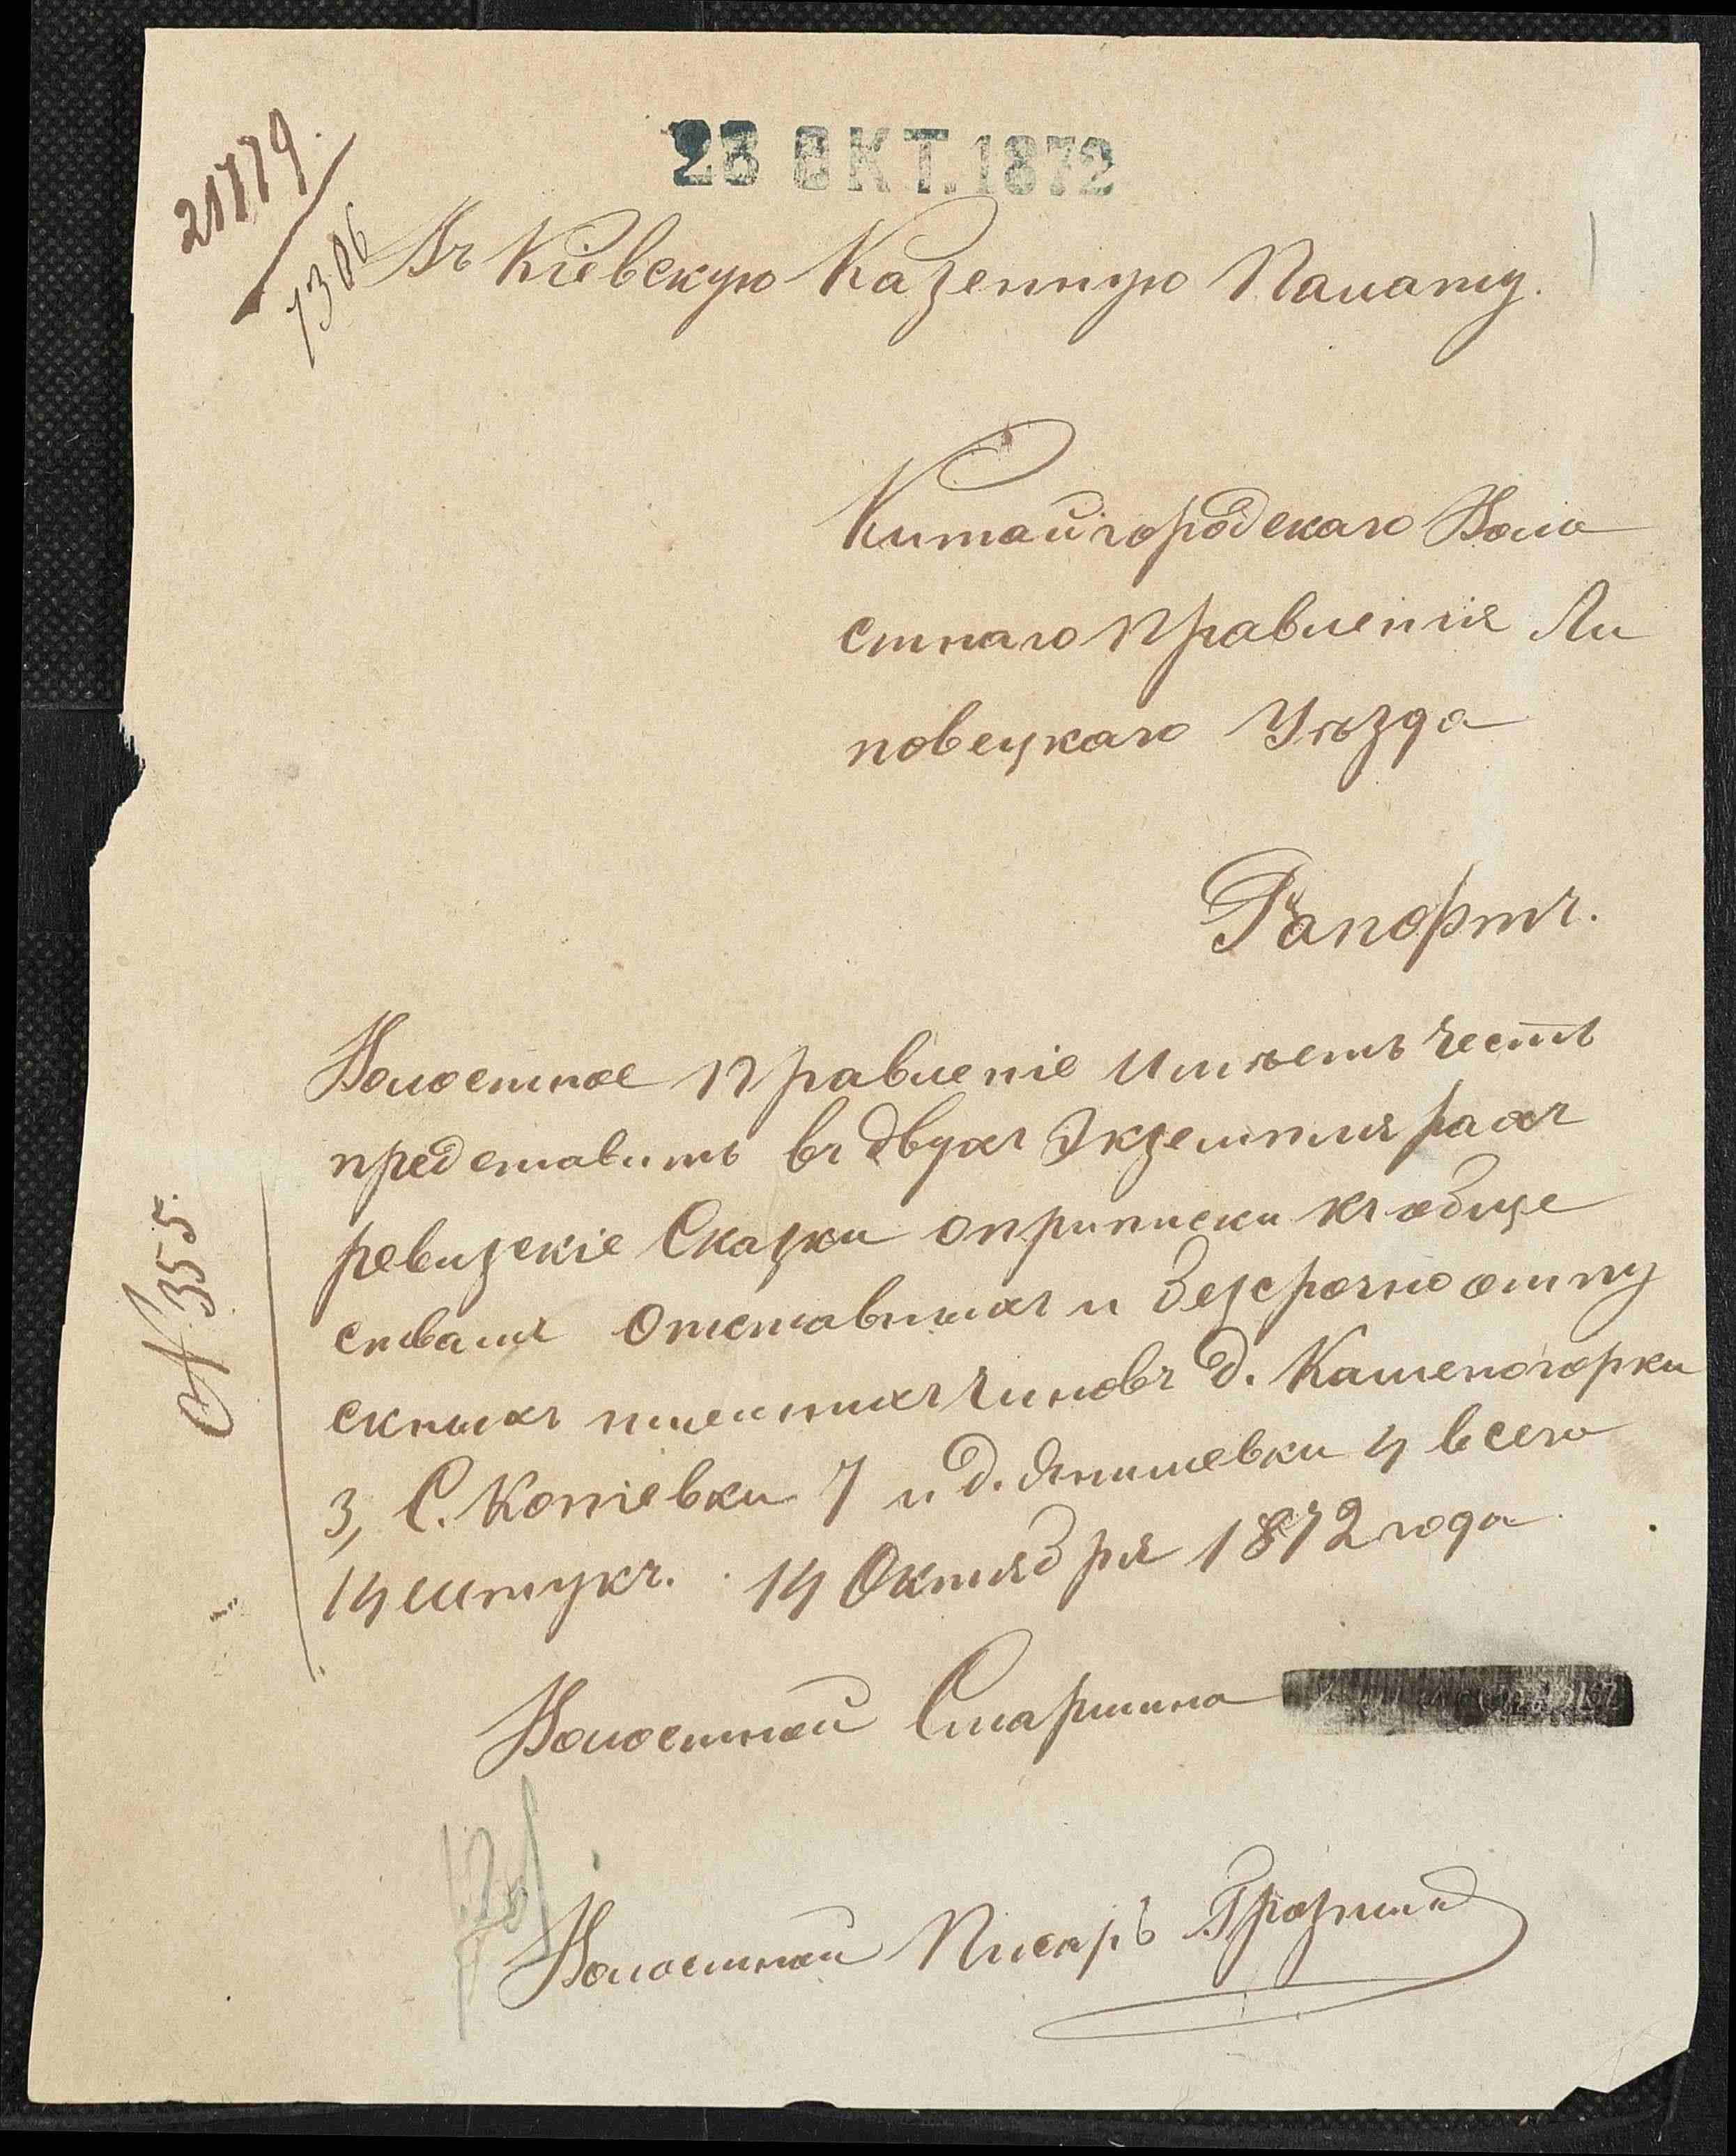 23 ОКТ. 1872
21779.
7306
Въ Кіевскую Казенную Палату.
Китайгородскаго Воло
стнаго Правленія Ли
повецкаго Уѣзда
Рапортъ.
Волостное Правленіе имѣетъ честь
представить въ двухъ Экземплярахъ
ревизскіе Сказки о приписки къ обще
ствамъ отставныхъ и безсрочно отпу
скныхъ нижнихъ чиновъ д. Каменогорки
3, С. Копіевки 7 и д. Янишевки 4 всего
14 штукъ. 14 Октября 1872 года
N 355.
Волостной Старшина
Волостной Писарь